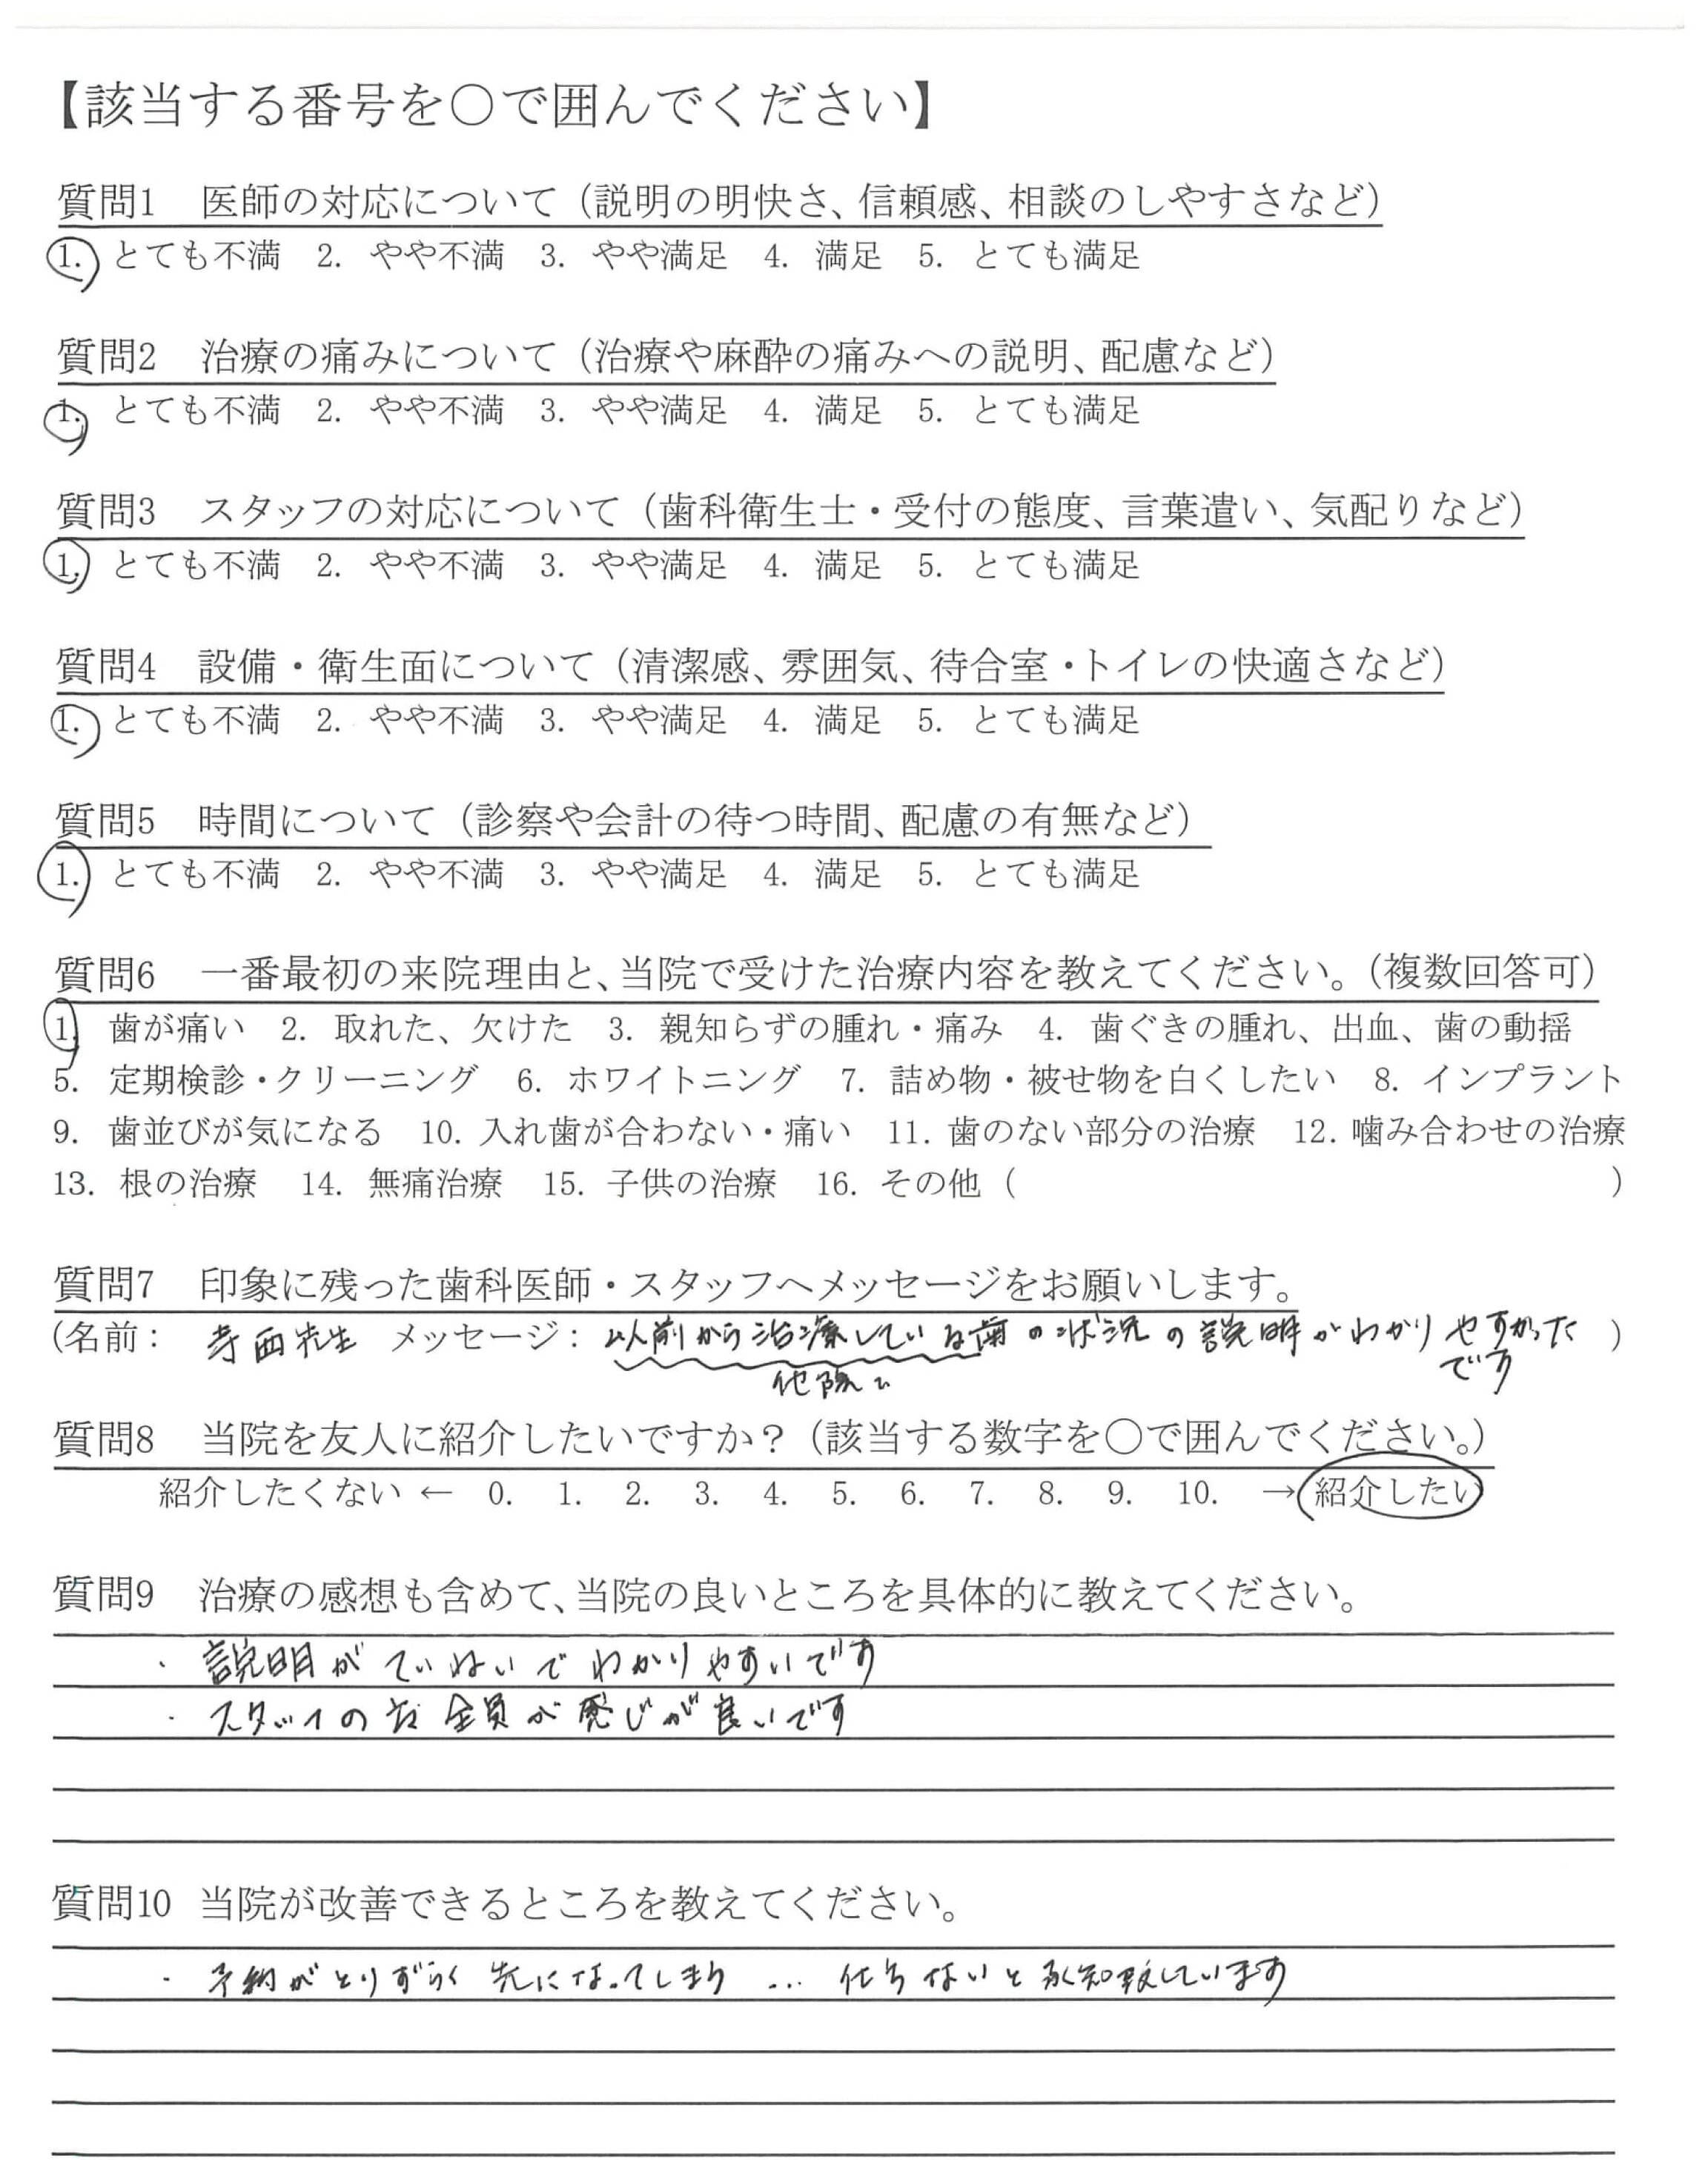 【該当する番号を○で囲んでください】
質問1 医師の対応について（説明の明快さ、信頼感、相談のしやすさなど）
1. とても不満 2. やや不満 3. やや満足 4. 満足 5. とても満足
質問2 治療の痛みについて（治療や麻酔の痛みへの説明、配慮など）
1. とても不満 2. やや不満 3. やや満足 4. 満足 5. とても満足
質問3 スタッフの対応について（歯科衛生士・受付の態度、言葉遣い、気配りなど）
1. とても不満 2. やや不満 3. やや満足 4. 満足 5. とても満足
質問4 設備・衛生面について（清潔感、雰囲気、待合室・トイレの快適さなど）
1. とても不満 2. やや不満 3. やや満足 4. 満足 5. とても満足
質問5 時間について（診察や会計の待つ時間、配慮の有無など）
1. とても不満 2. やや不満 3. やや満足 4. 満足 5. とても満足
質問6 一番最初の来院理由と、当院で受けた治療内容を教えてください。（複数回答可）
1. 歯が痛い 2. 取れた、欠けた 3. 親知らずの腫れ・痛み 4. 歯ぐきの腫れ、出血、歯の動揺
5. 定期検診・クリーニング 6. ホワイトニング 7. 詰め物・被せ物を白くしたい 8. インプラント
9. 歯並びが気になる 10. 入れ歯が合わない・痛い 11. 歯のない部分の治療 12. 噛み合わせの治療
13. 根の治療 14. 無痛治療 15. 子供の治療 16. その他（ ）
質問7 印象に残った歯科医師・スタッフへメッセージをお願いします。
（名前： 寺西先生 メッセージ： 以前から治療している歯の状況の説明がわかりやすかった ）
です
他院で
質問8 当院を友人に紹介したいですか？（該当する数字を○で囲んでください。）
紹介したくない ← 0. 1. 2. 3. 4. 5. 6. 7. 8. 9. 10. → 紹介したい
質問9 治療の感想も含めて、当院の良いところを具体的に教えてください。
・ 説明がていねいでわかりやすいです
・ スタッフの方全員が感じが良いです
質問10 当院が改善できるところを教えてください。
・ 予約がとりずらく 先になってしまう … 仕方ないと承知致しています